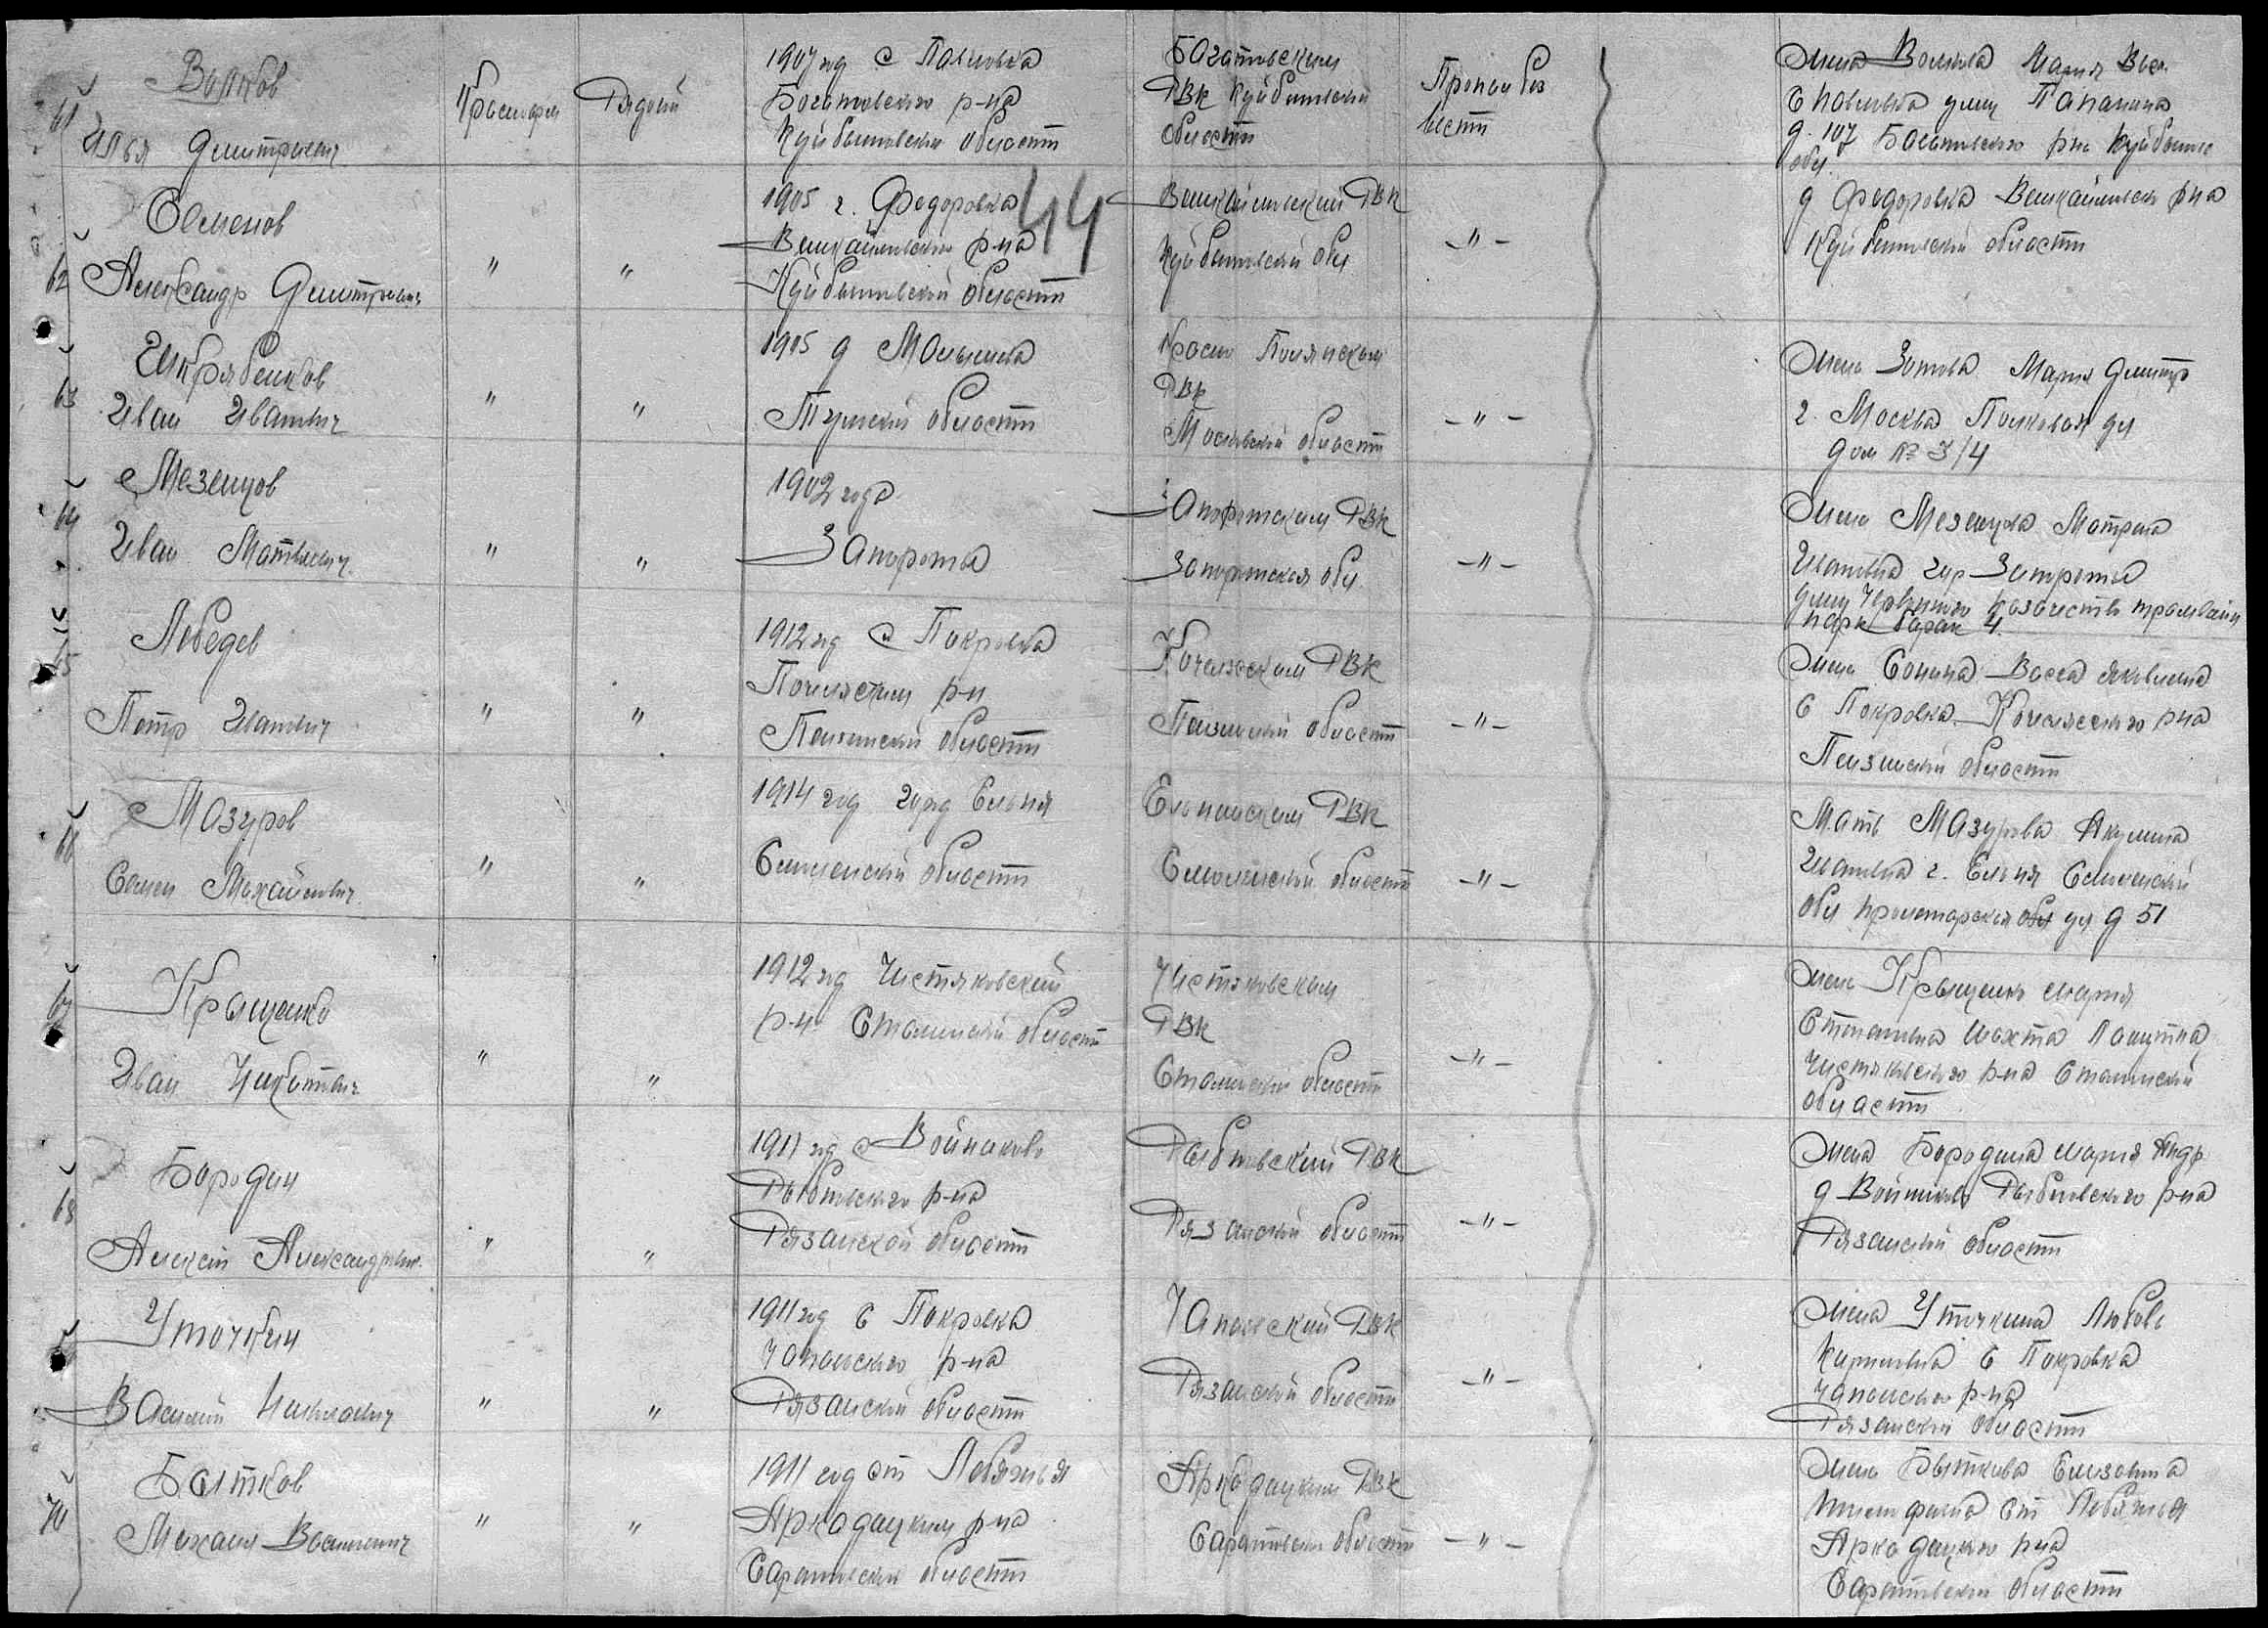 61
Волков
Илья Дмитриевич
Красноарм
Рядовой
1907 год с Павловка
Богатовского р-на
Куйбышевской области
Богатовским
РВК Куйбышевской
области
Пропал без
вести
Жена Волкова Мария Вас.
с Павловка улиц Папанина
д. 107 Богатовского р-на Куйбышевс
обл.
62
Семенов
Александр Дмитриевич
"
"
1905 г. Федоровка
44
Вешкаймовского р-на
Куйбышевской области
Вешкаймовский РВК
Куйбышевской обл
-"-
д Федоровка Вешкаймовск р-на
Куйбышевской области
63
Иван Иванович
"
"
1905 д
Тульской области
Красно Полянским
РВК
Московской области
-"-
Жена Зотова Мария Дмитр
г. Москва Полковая ул
дом № 3/4
64
Мезенцов
Иван Матвеевич
"
"
1902 года
Запорожье
Запорожским РВК
Запорожская обл.
-"-
Жена Мезенцова Матрена
Ивановна гор Запорожье
улиц Червонного Казачества трамвайн
парк барак 4.
65
Лебедев
Петр Иванович
"
"
1912 год с Покровка
р-н
Пензенской области
РВК
Пензенской области
-"-
Жена Сонина Васса Яковлевна
с Покровка р-на
Пензенской области
66
Мазуров
Семен Михайлович
"
"
1914 год город Ельня
Смоленской области
Ельнинским РВК
Смоленской области
-"-
Мать Мазурова Акулина
Ивановна г. Ельня Смоленской
обл Пролетарская обл ул д 51
67
Крыщенко
Иван Никитович
"
"
1912 год Чистяковский
р-н Сталинской области
Чистяковским
РВК
Сталинской области
-"-
Жена Крыщенко Мария
Степановна шахта Лопутина
Чистяковского р-на Сталинской
области
68
Бородин
Алексей Александрович
"
"
1911 год с Войниково
Рыбновского р-на
Рязанской области
Рыбновский РВК
Рязанской области
-"-
Жена Бородина Мария Андр
д Войниково Рыбновского р-на
Рязанской области
Уточкин
Василий Николаевич
"
"
1911 год с Покровка
Чапаевского р-на
Рязанской области
Чапаевский РВК
Рязанской области
-"-
Жена Уточкина Любовь
с Покровка
Чапаевского р-на
Рязанской области
70
Бытков
Михаил Васильевич
"
"
1911 год ст Лебяжья
Аркадацким р-на
Саратовской области
Аркадацким РВК
Саратовской области
-"-
Жена Быткова Елизавета
ст Лебяжья
Аркадацкого р-на
Саратовской области